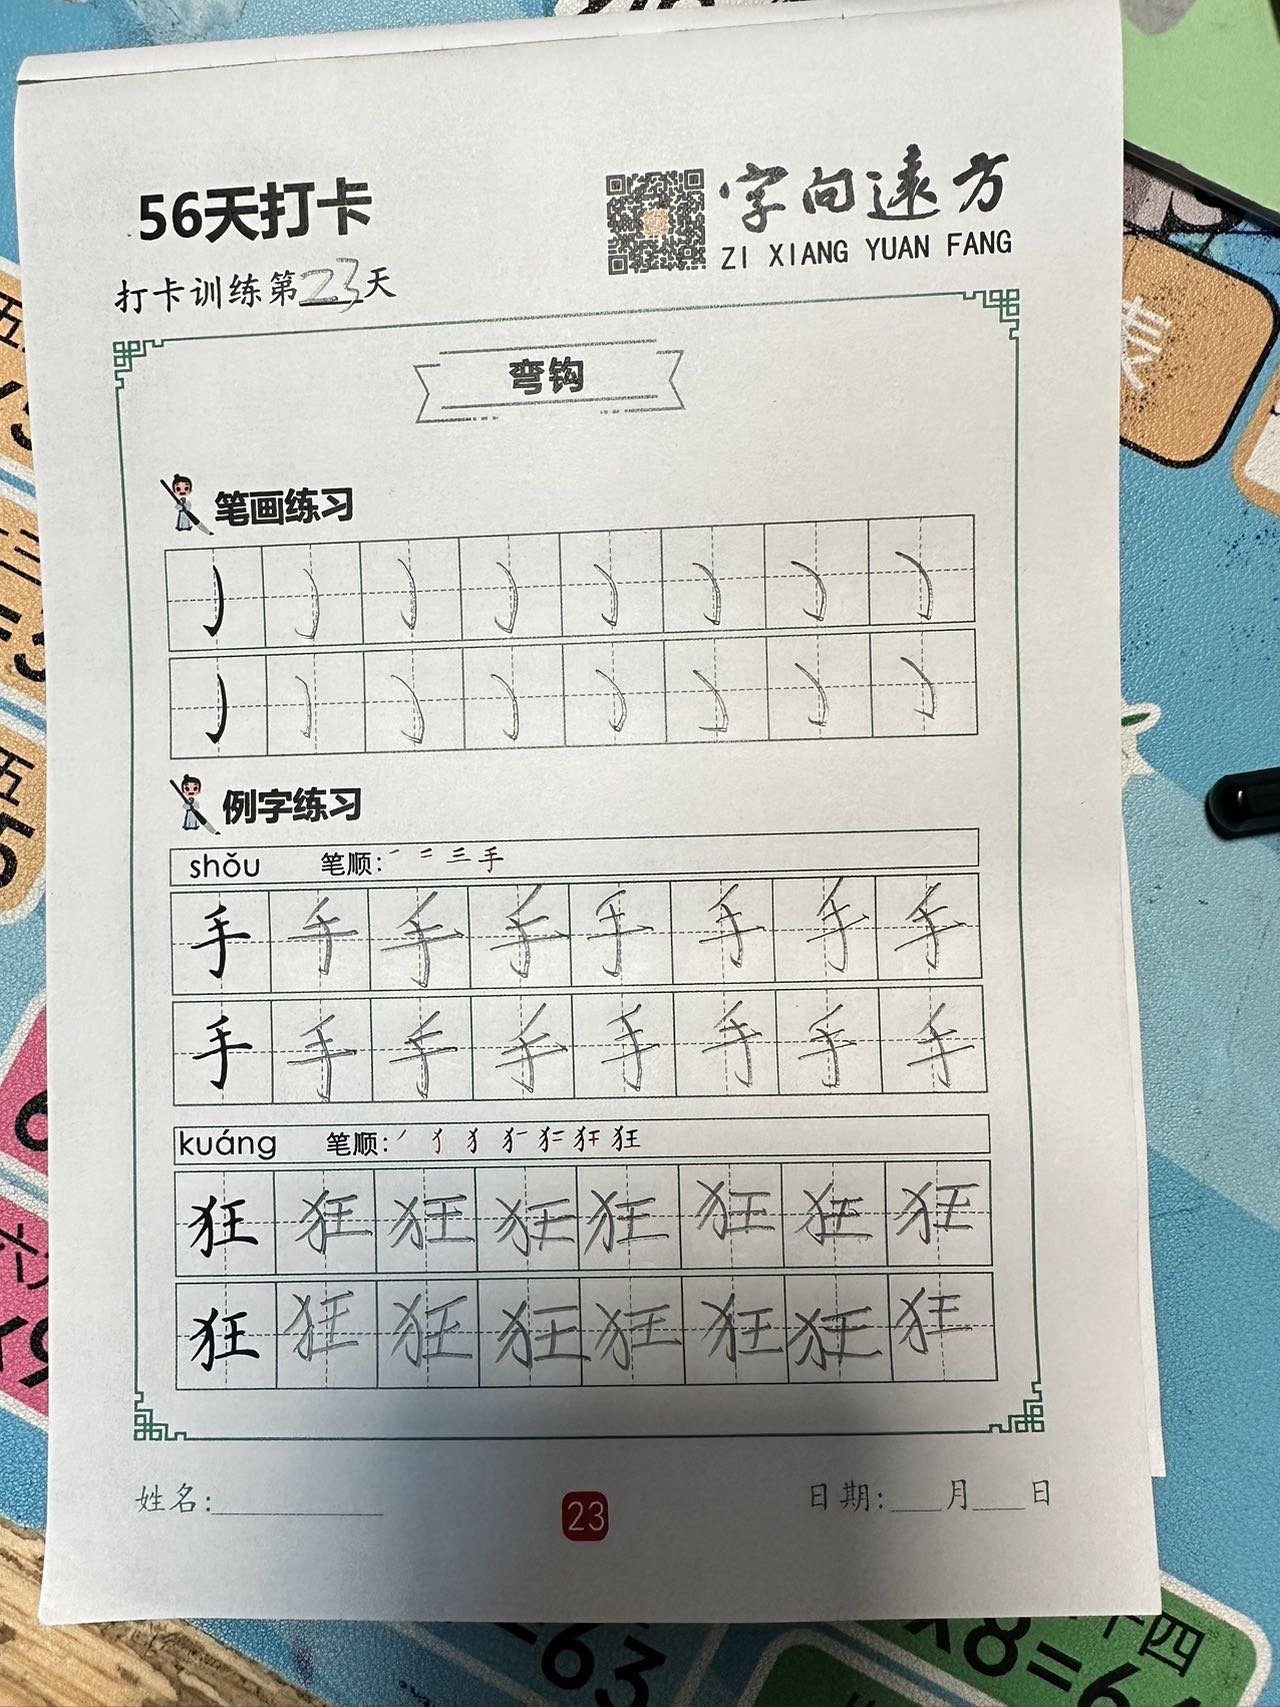 56天打卡
字向遠方
ZI XIANG YUAN FANG
打卡训练第23天
弯钩
笔画练习
例字练习
shǒu 笔顺: 手
手 手 手 手 手 手 手 手
手 手 手 手 手 手 手 手
kuáng 笔顺: 狂
狂 狂 狂 狂 狂 狂 狂 狂
狂 狂 狂 狂 狂 狂 狂 狂
姓名:
23
日期: 月 日
表
五
五
=63
×8=6
十四